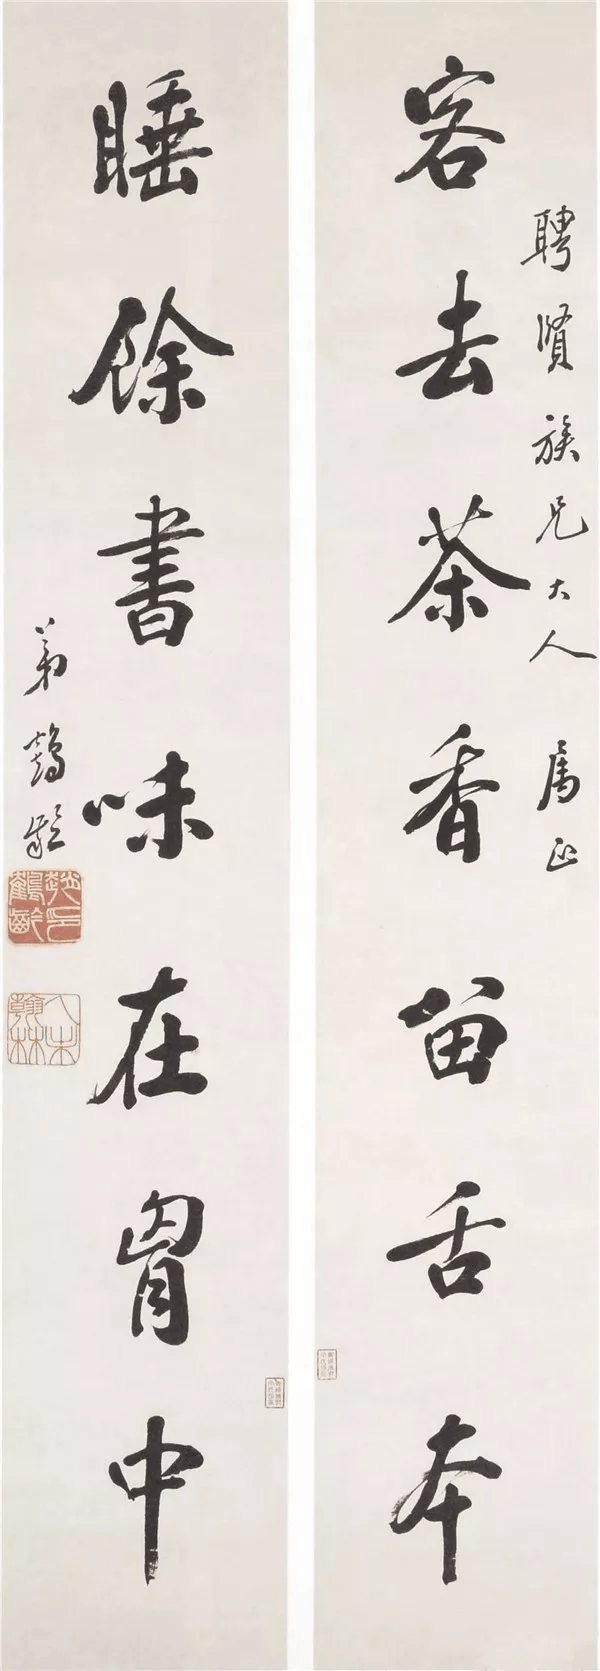 聘賢族兄大人 属正
客去茶香留舌本
睡餘書味在胷中
弟鶴齡
趙印鶴齡